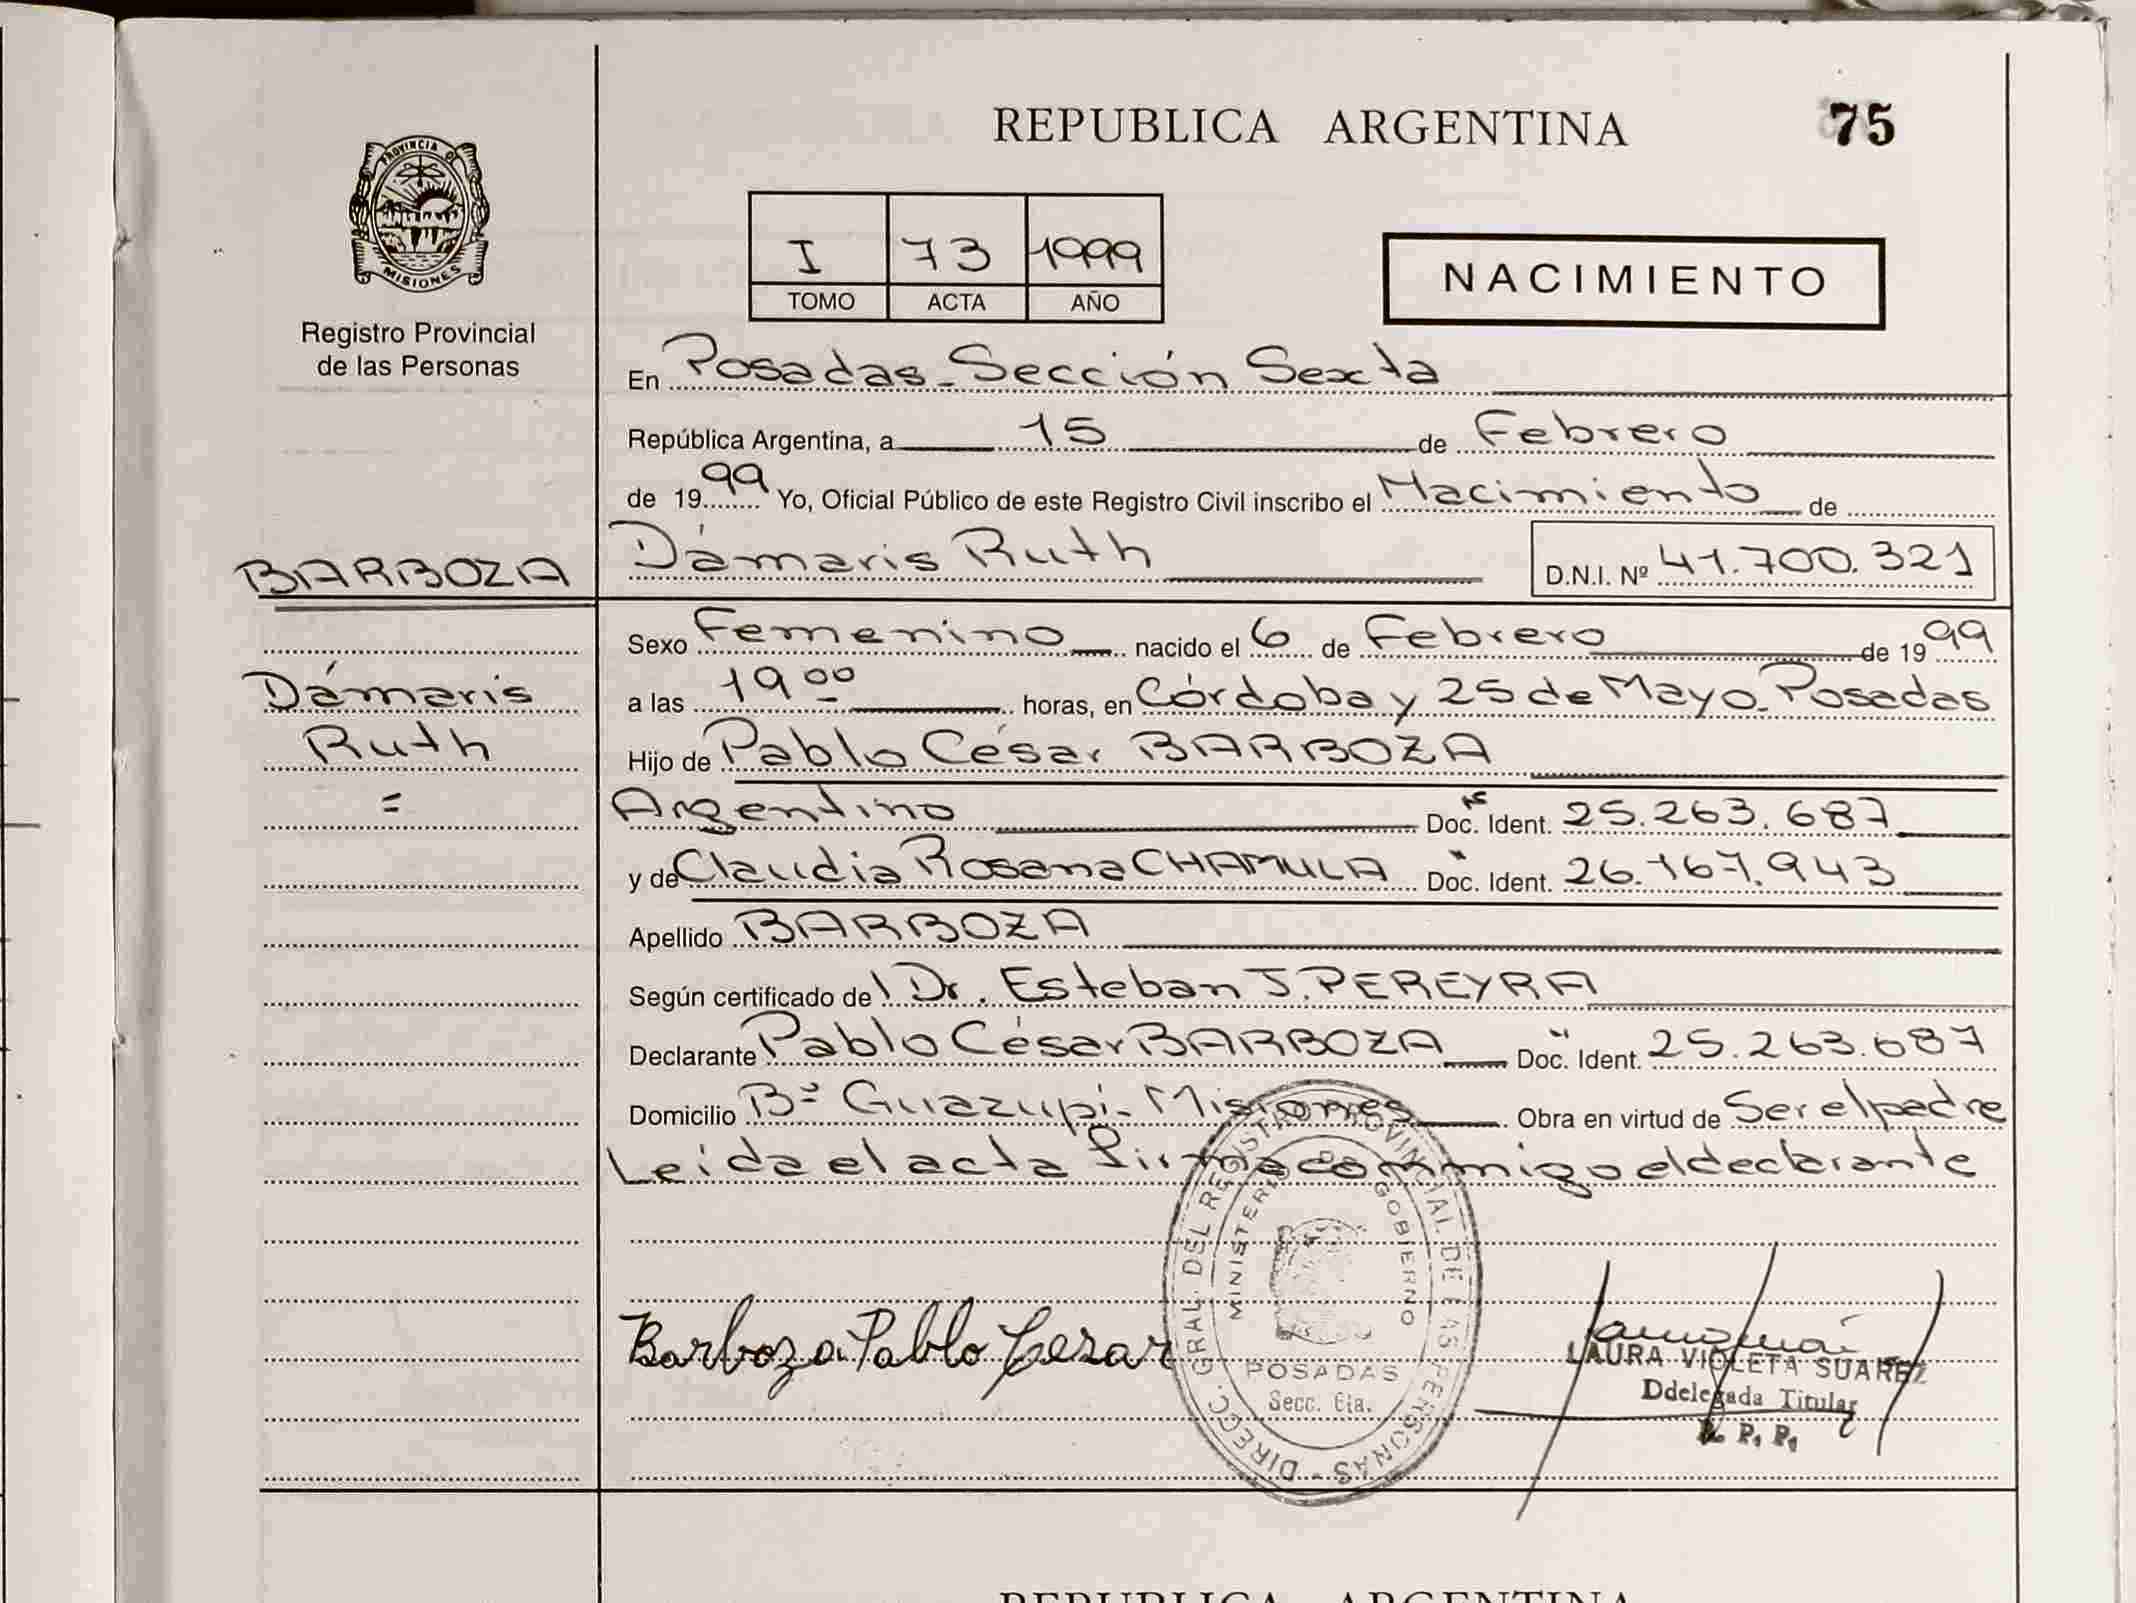 REPUBLICA ARGENTINA
75
PROVINCIA DE
MISIONES
Registro Provincial
de las Personas
I 73 1999
TOMO ACTA AÑO
NACIMIENTO
En Posadas-Sección Sexta
República Argentina, a 15 de Febrero
de 1999 Yo, Oficial Público de este Registro Civil inscribo el Nacimiento de
Dámaris Ruth D.N.I. Nº 41.700.321
BARBOZA
Dámaris
Ruth
=
Sexo Femenino nacido el 6 de Febrero de 1999
a las 19 00 horas, en Córdoba y 25 de Mayo-Posadas
Hijo de Pablo César BARBOZA
Argentino Doc. Ident. 25.263.687
y de Claudia Rosana CHAMULA " Doc. Ident. 26.167.943
Apellido BARBOZA
Según certificado del Dr. Esteban J. PEREYRA
Declarante Pablo César BARBOZA " Doc. Ident. 25.263.687
Domicilio Bº Guazupi-Misiones Obra en virtud de Ser el padre
Leida el acta firma conmigo el declarante
Barboza Pablo Cesar
DIRECC. GRAL. DEL REGISTRO PROVINCIAL DE LAS PERSONAS -
MINISTERIO DE GOBIERNO
POSADAS
Secc. 6ta.
LAURA VIOLETA SUAREZ
Ddelegada Titular
R. P. P.
REPUBLICA ARGENTINA